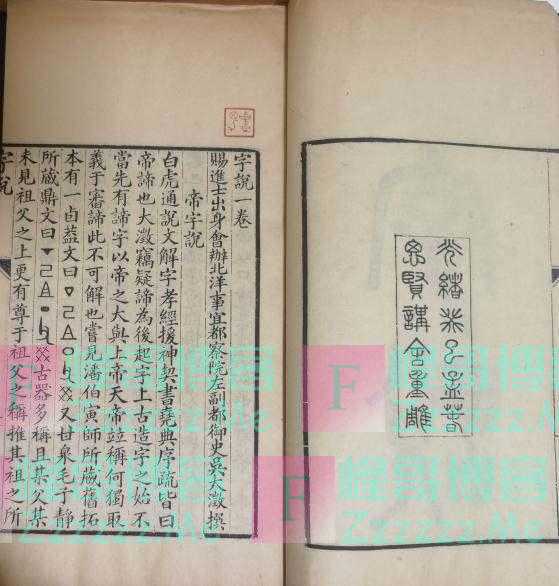 光緒癸巳孟春
思賢講舍重雕
字說一卷
賜進士出身會辦北洋事宜都察院左副都御史吳大澂撰
帝字說
白虎通說文解字孝經援神契書堯典序疏皆曰
帝諦也大澂竊疑諦為後起字上古造字之始不
當先有諦字以帝之大與上帝天帝竝稱何獨取
義于審諦此不可解也嘗見潘伯寅師所藏舊拓
本有一卣葢文曰又甘泉毛子靜
所藏鼎文曰古器多稱且某父某
未見祖父之上更有尊于祖父之稱推其祖之所
字說
F
F